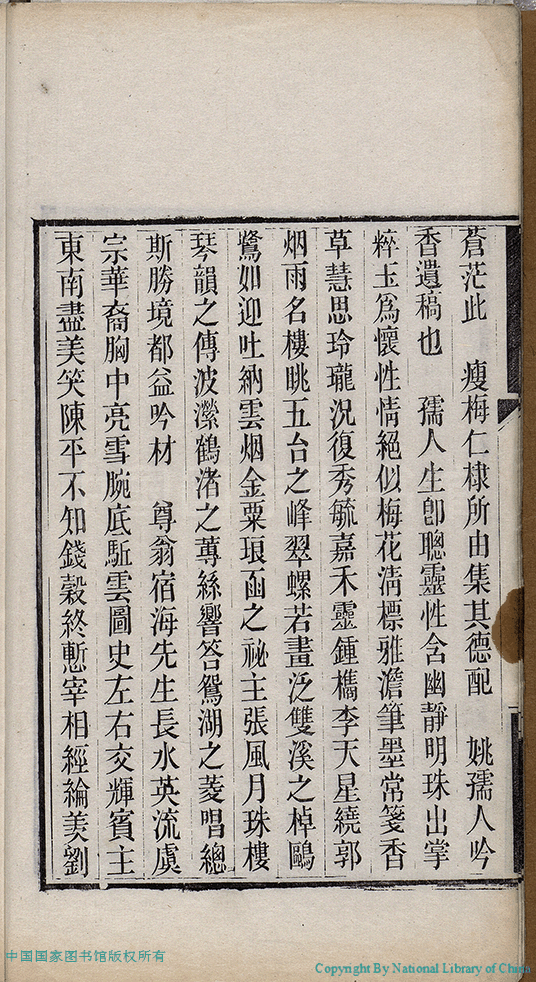 蒼茫此　瘦梅仁棣所由集其德配　姚孺人吟
香遺稿也　孺人生卽聰靈性含幽靜明珠出掌
粹玉爲懷性情絕似梅花淸標雅澹筆墨常箋香
草慧思玲瓏況復秀毓嘉禾靈鍾檇李天星繞郭
烟雨名樓眺五台之峰翠螺若畫泛雙溪之棹鷗
鷺如迎吐納雲烟金粟琅函之祕主張風月珠樓
琴韻之傳波瀠鶴渚之蓴絲響答鴛湖之菱唱總
斯勝境都益吟材　尊翁宿海先生長水英流虞
宗華裔胸中亮雪腕底駈雲圖史左右交輝賓主
東南盡美笑陳平不知錢穀終慙宰相經綸羙劉
中国国家图书馆版权所有
Copyright By National Library of China